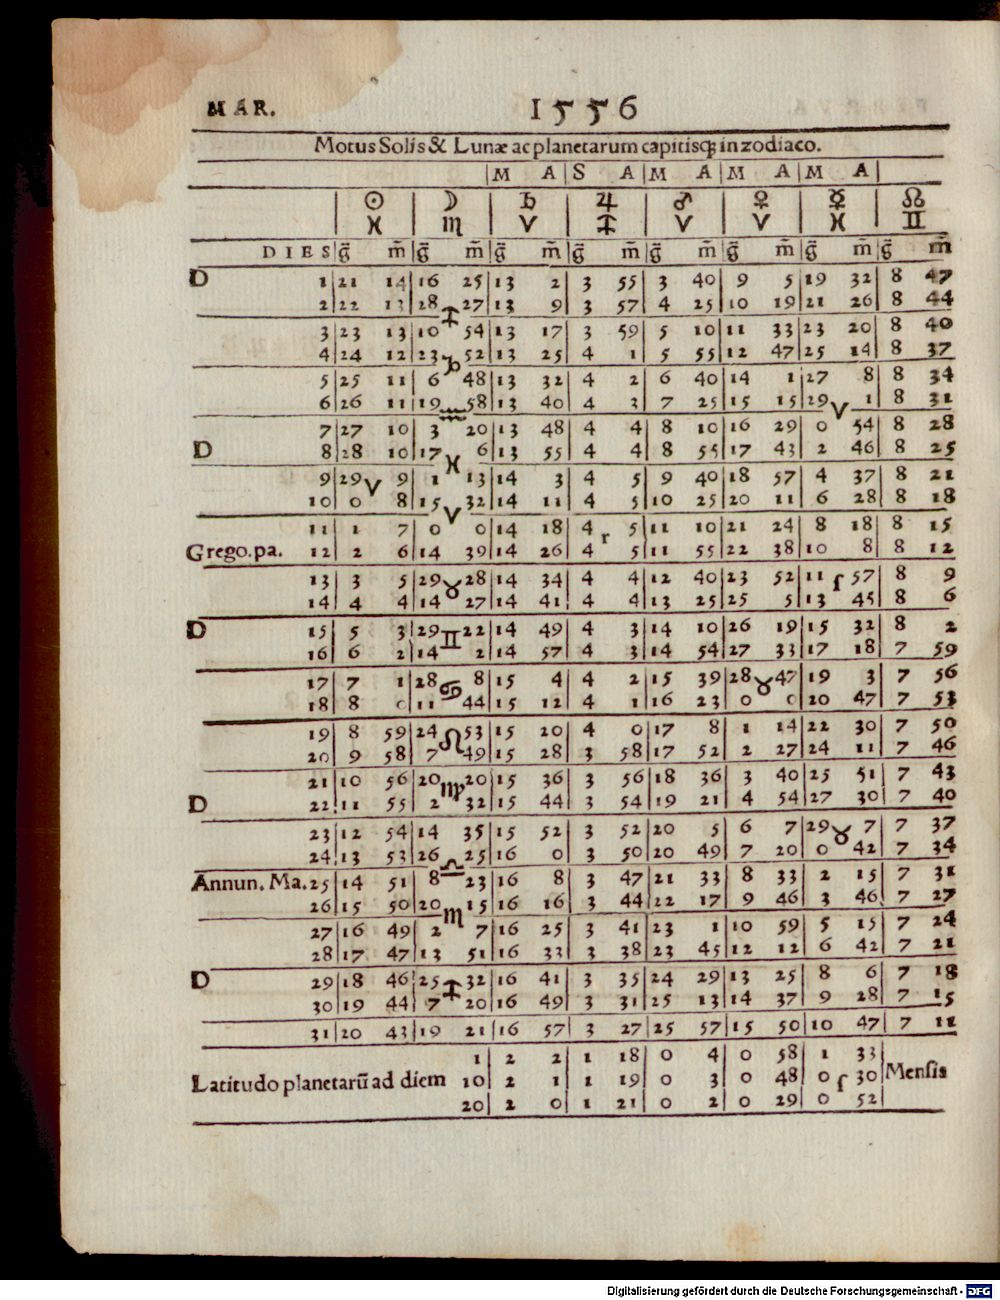 MAR. 1556
Motus Solis & Lunæ ac planetarum capitisq; in zodiaco.
M A S A M A M A M A
☉ ☽ ♄ ♃ ♂ ♀ ☿ ☊
♓ ♏ ♈ ♐ ♈ ♈ ♓ ♊
DIES g̃ m̃ g̃ m̃ g̃ m̃ g̃ m̃ g̃ m̃ g̃ m̃ g̃ m̃ g̃ m̃
D 1 21 14 16 25 13 2 3 55 3 40 9 5 19 32 8 47
2 22 13 28 ♐ 27 13 9 3 57 4 25 10 19 21 26 8 44
3 23 13 10 54 13 17 3 59 5 10 11 33 23 20 8 40
4 24 12 23 ♑ 52 13 25 4 1 5 55 12 47 25 14 8 37
5 25 11 6 48 13 32 4 2 6 40 14 1 27 8 8 34
6 26 11 19 ♒ 58 13 40 4 3 7 25 15 15 29 ♈ 1 8 31
7 27 10 3 20 13 48 4 4 8 10 16 29 0 54 8 28
D 8 28 10 17 ♓ 6 13 55 4 4 8 55 17 43 2 46 8 25
9 29 ♈ 9 1 13 14 3 4 5 9 40 18 57 4 37 8 21
10 0 8 15 ♈ 32 14 11 4 5 10 25 20 11 6 28 8 18
11 1 7 0 0 14 18 4 r 5 11 10 21 24 8 18 8 15
Grego. pa. 12 2 6 14 39 14 26 4 5 11 55 22 38 10 8 8 12
13 3 5 29 ♉ 28 14 34 4 4 12 40 23 52 11 ſ 57 8 9
14 4 4 14 27 14 41 4 4 13 25 25 5 13 45 8 6
D 15 5 3 29 ♊ 22 14 49 4 3 14 10 26 19 15 32 8 2
16 6 2 14 2 14 57 4 3 14 54 27 33 17 18 7 59
17 7 1 28 ♋ 8 15 4 4 2 15 39 28 ♉ 47 19 3 7 56
18 8 0 11 44 15 12 4 1 16 23 0 0 20 47 7 53
19 8 59 24 ♌ 53 15 20 4 0 17 8 1 14 22 30 7 50
20 9 58 7 49 15 28 3 58 17 52 2 27 24 11 7 46
21 10 56 20 ♍ 20 15 36 3 56 18 36 3 40 25 51 7 43
D 22 11 55 2 32 15 44 3 54 19 21 4 54 27 30 7 40
23 12 54 14 35 15 52 3 52 20 5 6 7 29 ♉ 7 7 37
24 13 53 26 ♎ 25 16 0 3 50 20 49 7 20 0 42 7 34
Annun. Ma. 25 14 51 8 23 16 8 3 47 21 33 8 33 2 15 7 31
26 15 50 20 ♏ 15 16 16 3 44 22 17 9 46 3 46 7 27
27 16 49 2 7 16 25 3 41 23 1 10 59 5 15 7 24
28 17 47 13 51 16 33 3 38 23 45 12 12 6 42 7 21
D 29 18 46 25 ♐ 32 16 41 3 35 24 29 13 25 8 6 7 18
30 19 44 7 20 16 49 3 31 25 13 14 37 9 28 7 15
31 20 43 19 21 16 57 3 27 25 57 15 50 10 47 7 11
1 2 2 1 18 0 4 0 58 1 33
Latitudo planetarũ ad diem 10 2 1 1 19 0 3 0 48 0 ſ 30 Mensis
20 2 0 1 21 0 2 0 29 0 52
Digitalisierung gefördert durch die Deutsche Forschungsgemeinschaft - DFG